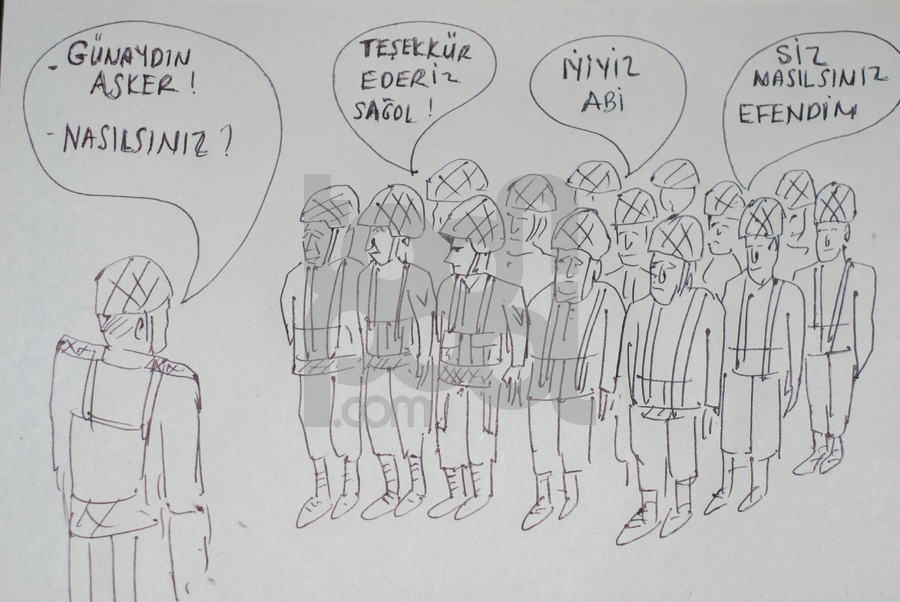 - GÜNAYDIN
ASKER !
- NASILSINIZ ?
TEŞEKKÜR
EDERİZ
SAĞOL !
İYİYİZ
ABİ
SİZ
NASILSINIZ
EFENDİM
.com